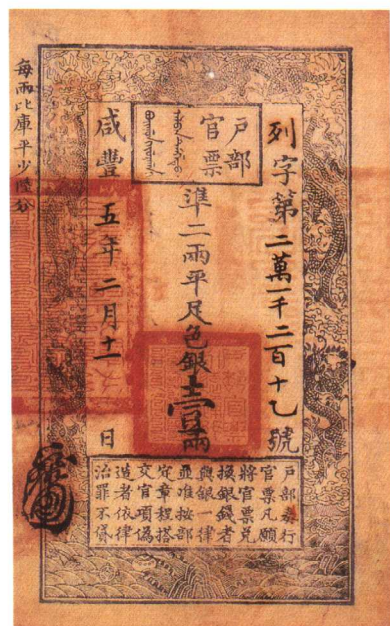 列字第二萬一千二百十七號
戶部
官票
準二兩平足色銀壹兩
咸豐五年二月十一日
每兩比庫平少陸分
戶部奏行
官票凡願
將官票兌
換銀錢者
與銀一律
並准按部
定章程搭
交官項偽
造者依律
治罪不貸